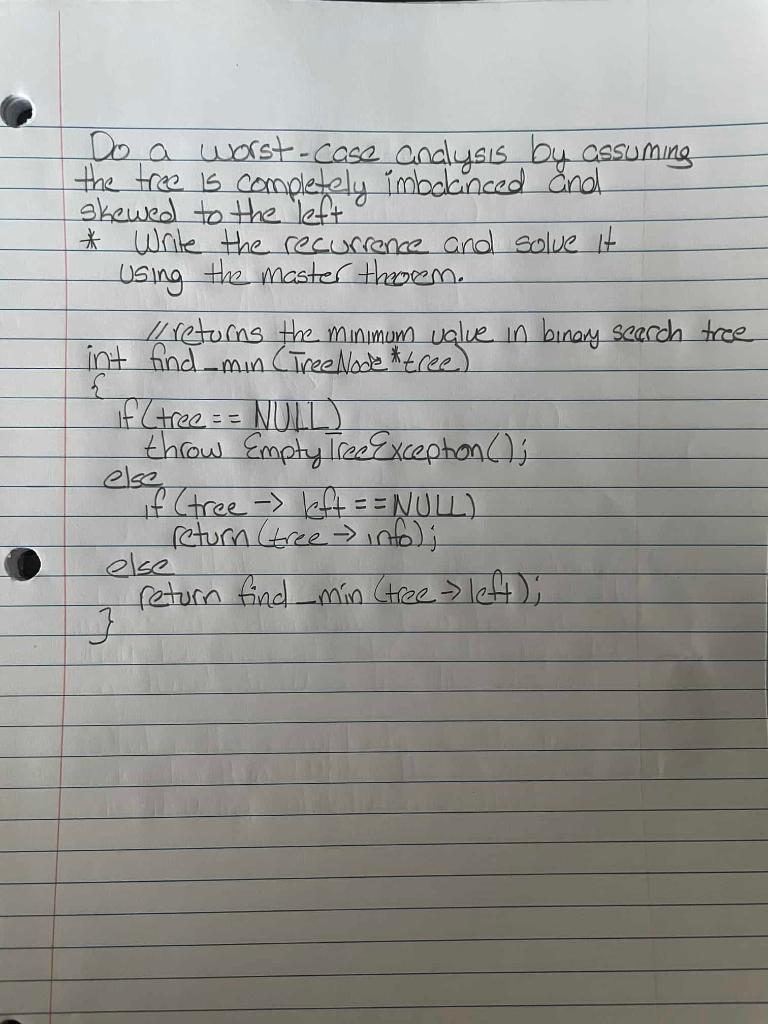 Do a worst-case analysis by assuming
the tree is completely imbalanced and
skewed to the left
* Write the recurrence and solve it
using the master theorem.
//returns the minimum value in binary search tree
int find_min (TreeNode *tree)
{
if (tree == NULL)
throw EmptyTreeException();
else
if (tree -> left == NULL)
return (tree -> info);
else
return find_min (tree -> left);
}